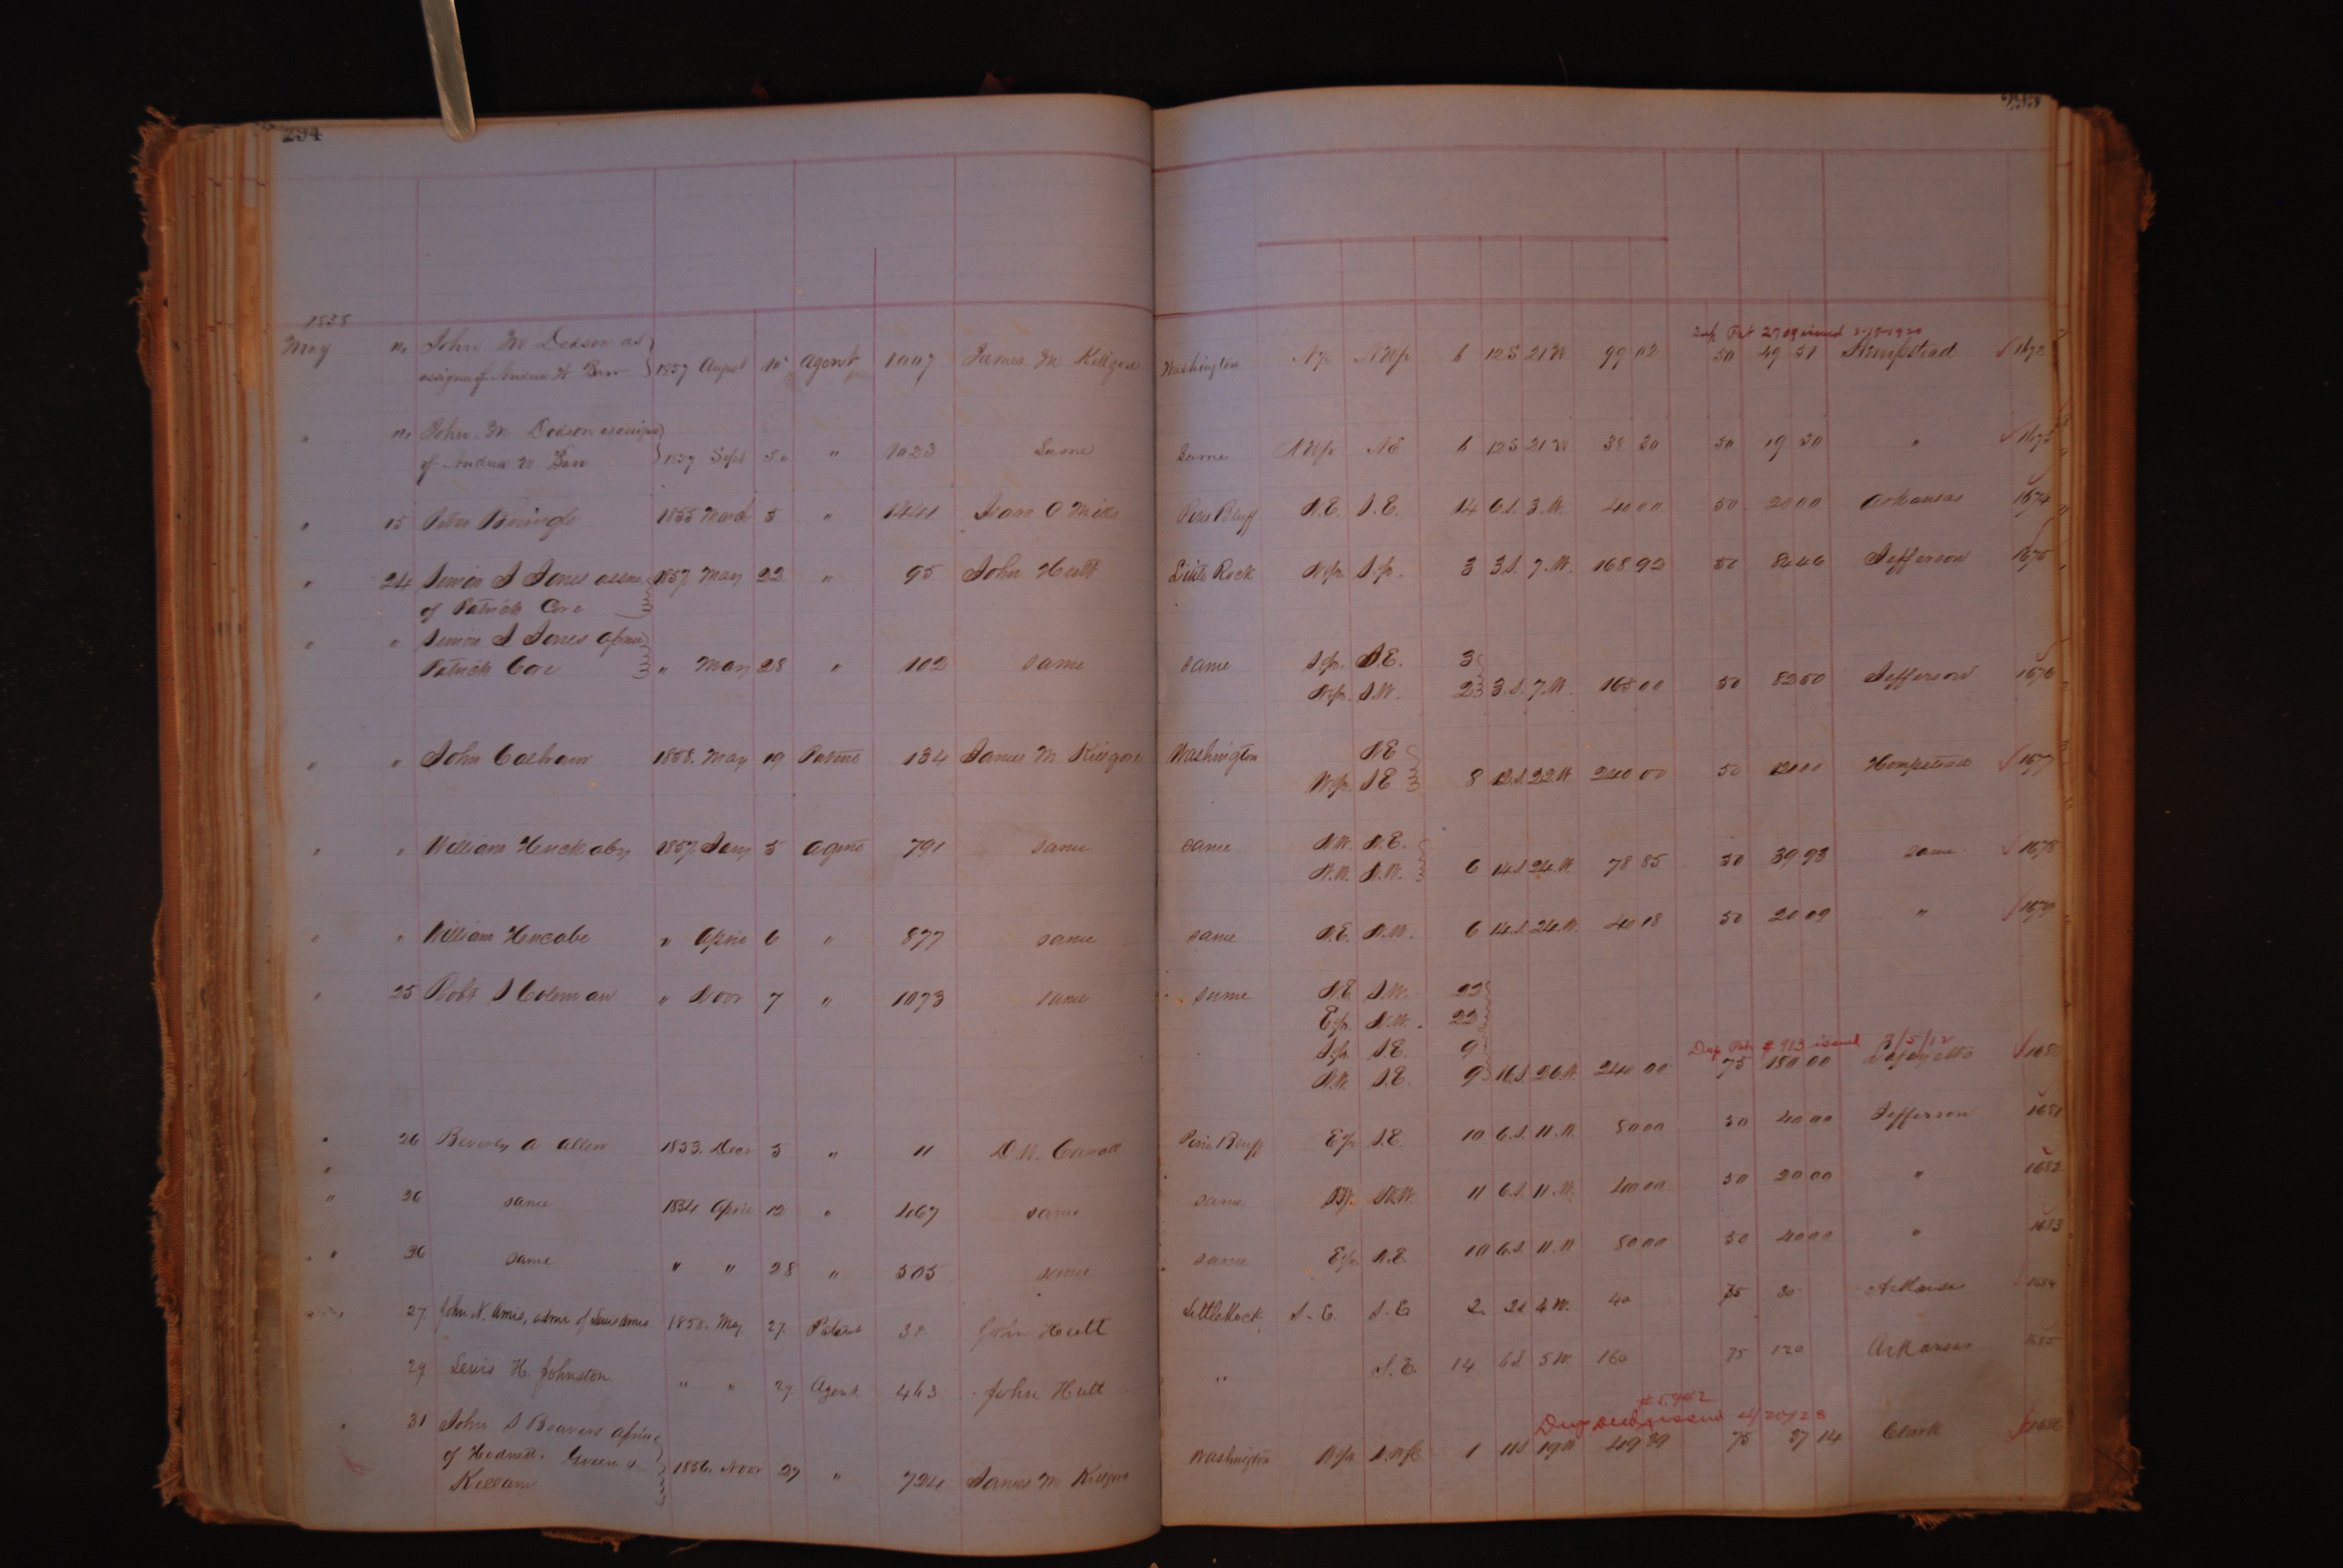 294
1858
May 11 John M Dodson as
assignee of Andrew H Barr 1857 August 10 Agent 1007 James M Killgore Washington N/p NW/p 6 12S 21W 99 02 50 49 51 Hempstead 1672
Dup Pat 2709 issued 1920
" 11 John M Dodson assignee
of Andrew H Barr 1857 Sept 5 " 1023 Same Same NW/p NE 6 12S 21W 38 30 50 19 30 " 1673
" 15 Peter Beringle 1855 March 5 " 1441 Isaac C Mills Pine Bluff N.E. S.E. 14 6.S. 3.W. 40 00 50 20 00 Arkansas 1674
" 24 Simon S Jones assnee 1857 May 22 " 95 John Hutt Little Rock N/p S/p. 3 3.S. 7.W. 168 92 50 84 46 Jefferson 1675
of Patrick Core
" " Simon S Jones assnee
Patrick Core " May 28 " 102 same same S/p. N.E. 3
N/p. S.W. 2 3.S. 7.W. 165 00 50 82 50 Jefferson 1676
" " John Calhoun 1858. May 19 Patent 134 James M Killgore Washington N.E
W/p. S E 8 12.S. 22.W 240 00 50 120 00 Hempstead 1677
" " William Huckaby 1857 Jany 5 Agent 791 same same N.W. N.E.
N.W. N.W. 6 14.S. 24.W. 78 85 50 39 93 same 1678
" " William Hucabe " April 6 " 877 same same N.E. N.W. 6 14.S. 24.W. 40 18 50 20 09 " 1679
" 25 Robt S Coleman " Novr 7 " 1073 same same N.E. S.W. 22
E/p. N.W. 22
S/p S.E. 9
Dup Pat # 913 issued 3/5/12
N.W. S.E. 9 16.S. 26.W. 240 00 75 180 00 Lafayette 1680
" 26 Beverly A Allen 1853. Decr 5 " 11 D.W. Carroll Pine Bluff E/p S.E. 10 6.S. 11.W. 80 00 50 40 00 Jefferson 1681
"
" 26 same 1854 April 12 " 467 same same 11 6.S. 11.W. 40 00 50 20 00 " 1682
" 26 same " " 28 " 505 same same E/p N.E 10 6.S. 11.W 80 00 50 40 00 " 1683
27 John N. Amis, admr of Lewis Amis 1858. May 27. Patent John Hutt Little Rock S.E. S.E 2. 2S 4W. 40 75 30 Arkansas 1684
29 Lewis H. Johnston " " 27 Agent. 463 John Hutt " S.E. 14 6S 5W 160 75 120 Arkansas 1685
Dup deed issued 4/20/28
31 John S Beavers assnee
of Hodnett. Green &
Killam 1856. Novr 27 " 724 James M Killgore Washington 1 11S 19W 49 39 75 37 14 Clark 1686